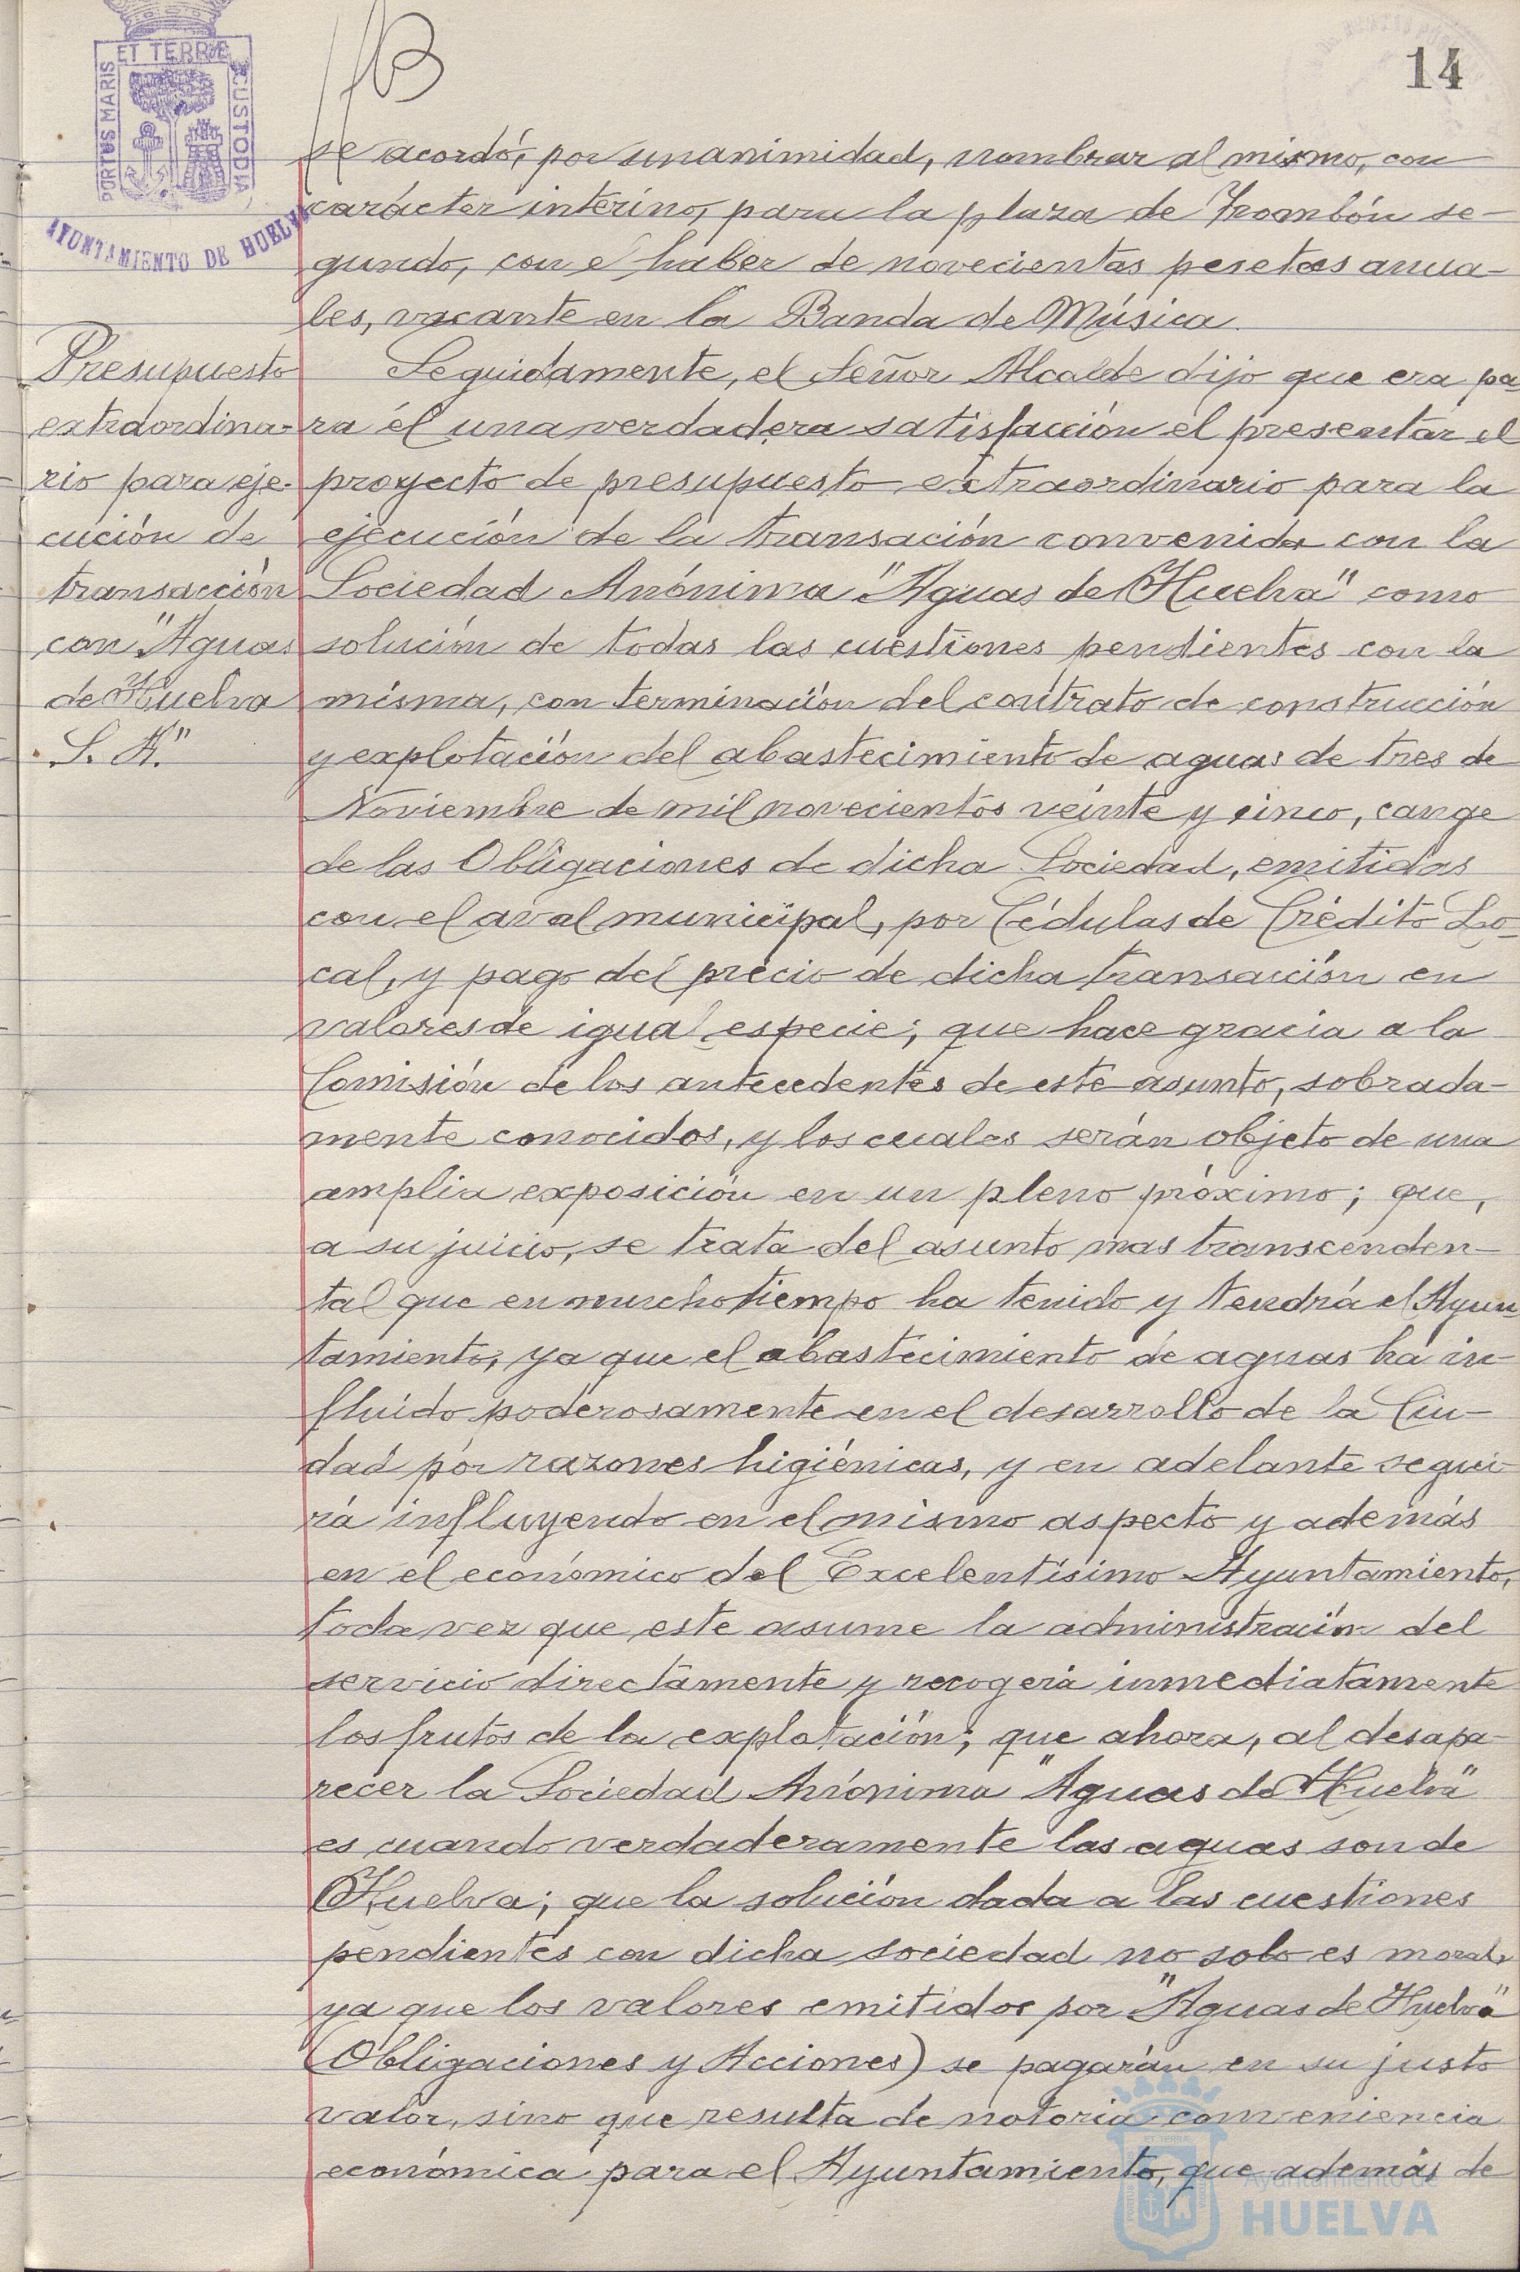 14
PORTUS MARIS ET TERRE CUSTODIA
AYUNTAMIENTO DE HUELVA
se acordó, por unanimidad, nombrar al mismo, con
carácter interino, para la plaza de Trombón se-
gundo, con el haber de novecientas pesetas anua-
les, vacante en la Banda de Música.
Presupuesto
extraordina-
rio para eje-
cución de
transacción
con "Aguas
de Huelva
S. A."
Seguidamente, el Señor Alcalde dijo que era pa-
ra él una verdadera satisfacción el presentar el
proyecto de presupuesto extraordinario para la
ejecución de la transación convenida con la
Sociedad Anónima "Aguas de Huelva" como
solución de todas las cuestiones pendientes con la
misma, con terminación del contrato de construcción
y explotación del abastecimiento de aguas de tres de
Noviembre de mil novecientos veinte y cinco, cange
de las Obligaciones de dicha Sociedad, emitidas
con el aval municipal, por Cédulas de Crédito Lo-
cal, y pago del precio de dicha transacción en
valores de igual especie; que hace gracia a la
Comisión de los antecedentes de este asunto, sobrada-
mente conocidos, y los cuales serán objeto de una
amplia exposición en un pleno próximo; que,
a su juicio, se trata del asunto mas transcenden-
tal que en mucho tiempo ha tenido y tendrá el Ayun-
tamiento, ya que el abastecimiento de aguas ha in-
fluido poderosamente en el desarrollo de la Ciu-
dad por razones higiénicas, y en adelante segui-
rá influyendo en el mismo aspecto y además
en el económico del Excelentísimo Ayuntamiento,
toda vez que este asume la administración del
servicio directamente y recogerá inmediatamente
los frutos de la explotación; que ahora, al desapa-
recer la Sociedad Anónima "Aguas de Huelva"
es cuando verdaderamente las aguas son de
Huelva; que la solución dada a las cuestiones
pendientes con dicha sociedad no solo es moral,
ya que los valores emitidos por "Aguas de Huelva"
(Obligaciones y Acciones) se pagarán en su justo
valor, sino que resulta de notoria conveniencia
económica para el Ayuntamiento, que además de
Ayuntamiento de
HUELVA